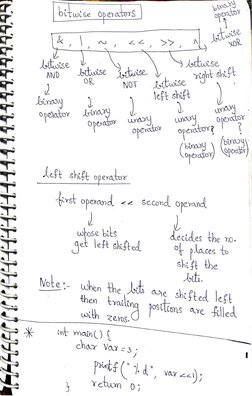 bitwise operators
&, |, ~, <<, >>, ^
bitwise AND
binary operator
bitwise OR
binary operator
bitwise NOT
unary operator
bitwise left shift
unary operator?
(binary operator)
bitwise right shift
unary operator
?
(binary operator)
bitwise XOR
binary operator
left shift operator
first operand << second operand
whose bits
get left shifted
decides the no.
of places to
shift the
bits.
Note:- when the bits are shifted left
then trailing positions are filled
with zeros.
* int main() {
char var = 3;
printf("%d", var<<1);
} return 0;